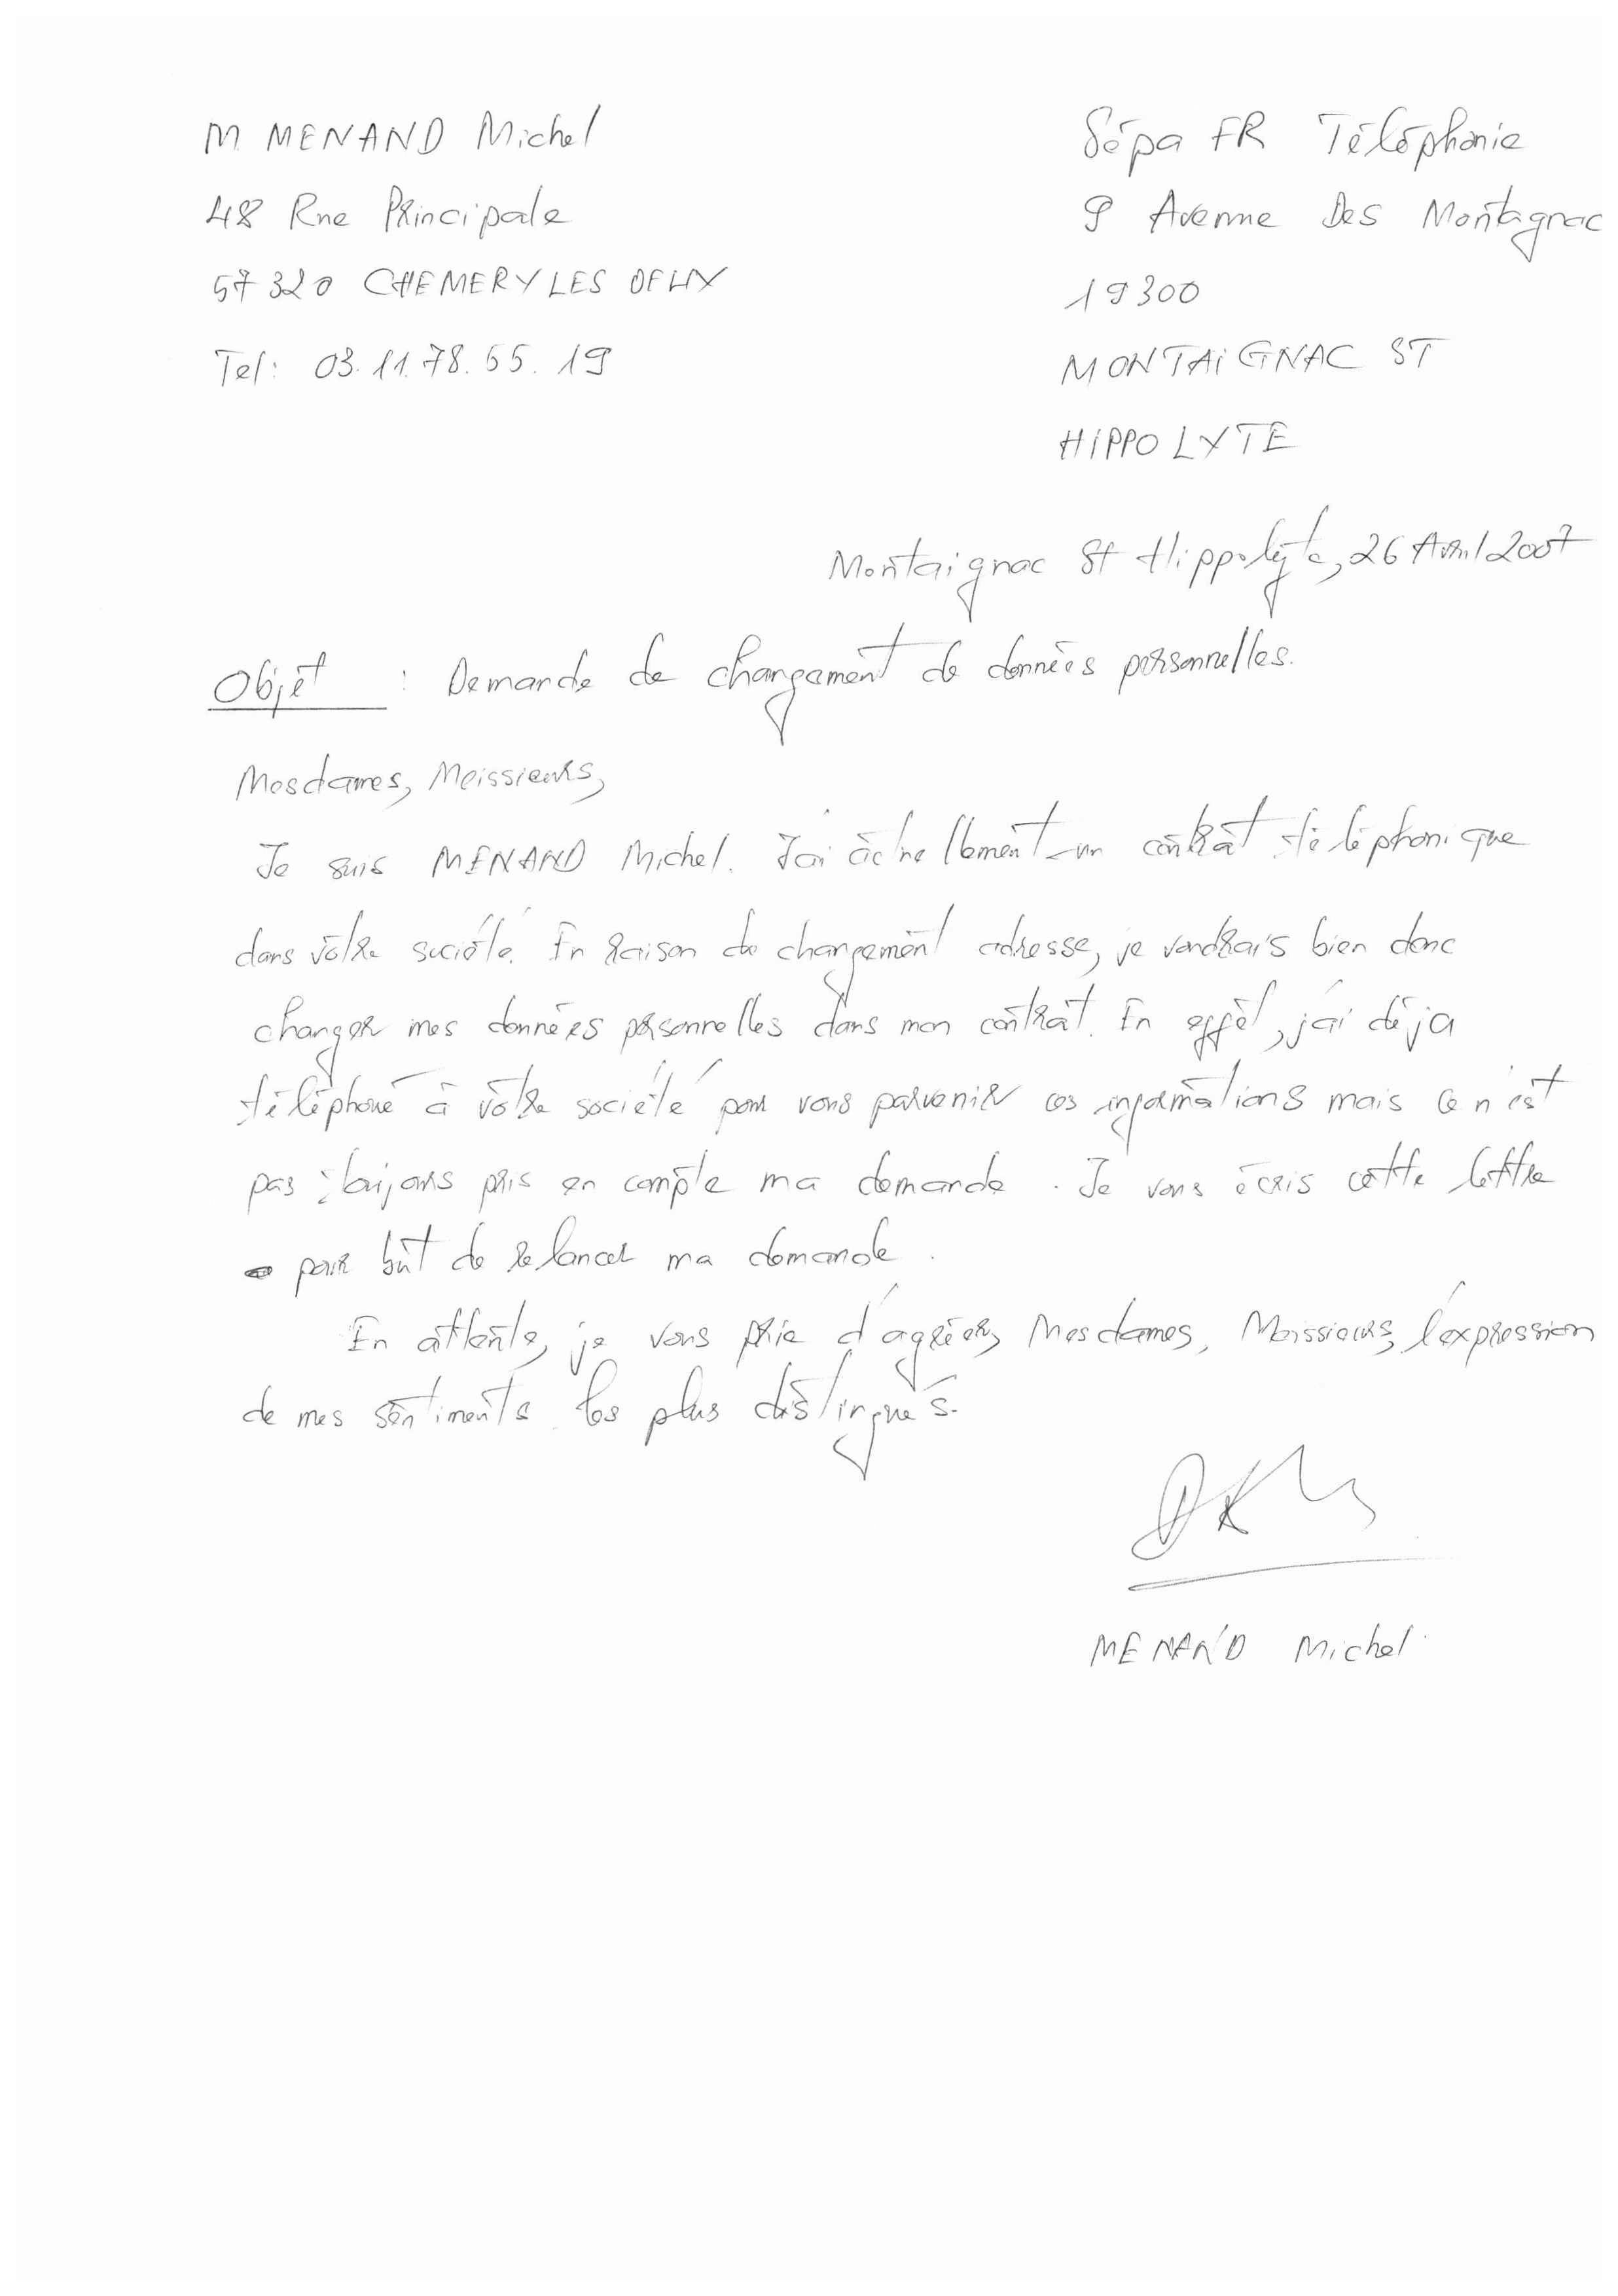 M MENAND Michel
48 Rue Principale
57320 CHEMERY LES DEUX
Tel: 03.11.78.55.19
Sépa FR Téléphonie
9 Avenue Des Montagnac
19300
MONTAIGNAC ST
HIPPOLYTE
Montaignac St Hippolyte, 26 Avril 2007
Objet : Demande de changement de données personnelles.
Mesdames, Meissieurs,
Je suis MENAND Michel. J'ai actuellement un contrat téléphonique
dans votre société. En raison de changement adresse, je voudrais bien donc
changer mes données personnelles dans mon contrat. En effet, j'ai déja
téléphoné à votre société pour vous parvenir ces informations mais ce n'est
pas toujours pris en compte ma demande. Je vous écris cette lettre
pour but de relancer ma demande.
En attente, je vous prie d'agréer, Mesdames, Meissieurs, l'expression
de mes sentiments les plus distingués.
MENAND Michel